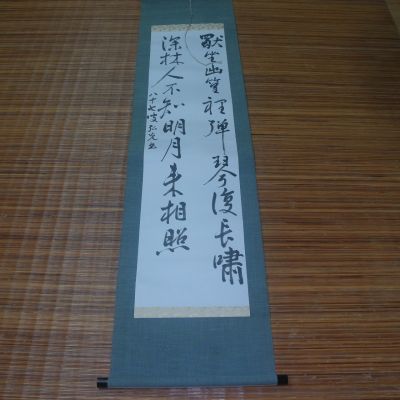 獸坐幽篁裡彈琴復長嘯
深林人不知明月来相照
八十七叟